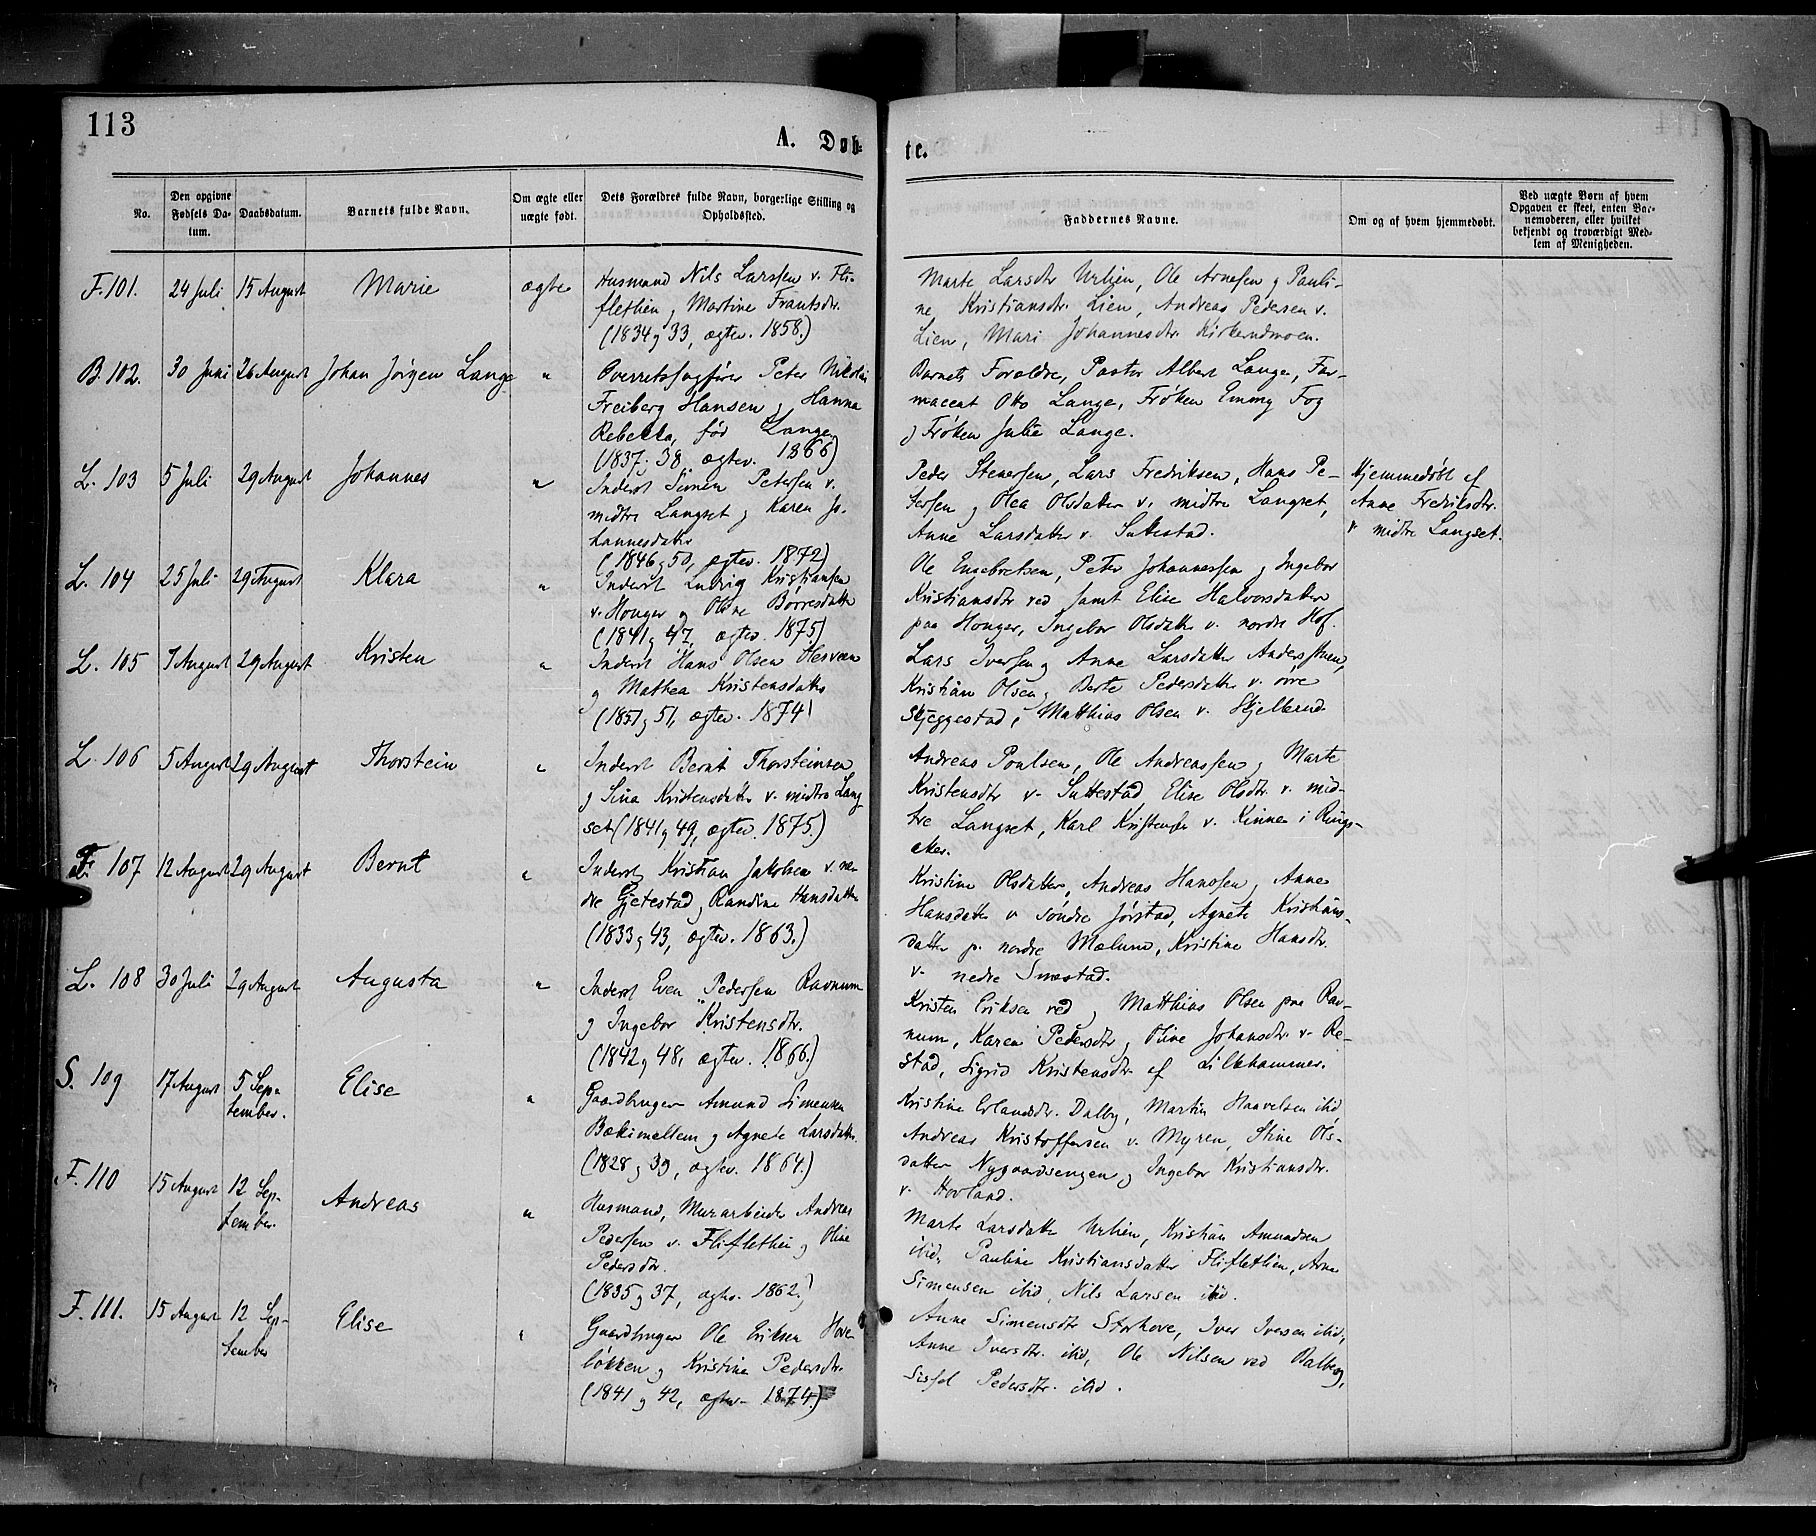 113
A. Døb-
te.
No.
Den opgivne Fødsels Da-tum.
Daabsdatum.
Barnets fulde Navn.
Om ægte eller uægte født.
Dets Forældres fulde Navn, borgerlige Stilling og Opholdssted.
Faddernes Navne.
Om og af hvem hjemmedøbt.
Ved uægte Børn af hvem Opgaven er skeet, enten Bar-nemoderen, eller hvilket bekjendt og troværdigt Med-lem af Menigheden.
F. 101. 24 Juli 15 August Marie ægte
Husmand Nils Larssen v. Fli-
flethien, Martine Frantsdr.
(1834 g 33, ægtev. 1858.)
Marte Larsdtr Urlien, Ole Arnesen g Pauli-
ne Kristiansdtr. Lien, Andreas Pedersen v.
Lien, Mari Johannesdtr. Kirkerudmoen.
B. 102. 30 Juni 26 August Johan Jörgen Lange "
Overretssagfører Peter Nikolai
Freiberg Hansen g Hanna
Rebekka, fød Lange
(1837, 38, ægtev. 1866)
Barnets Forældre, Pastor Albert Lange, Far-
maceut Otto Lange, Frøken Emmy Fog
g Frøken Julie Lange.
L. 103 5 Juli 29 August Johannes "
Inderst Simen Petersen v.
midtre Langset g Karen Jo-
hannesdatter
(1846 g 50, ægtev. 1872)
Peder Stenersen, Lars Fredriksen, Hans Pe-
tersen g Olea Olsdatter v. midtre Langset,
Anne Larsdatter v. Suttestad.
Hjemmedøbt af
Anne Fredriksdtr.
v midtre Langset.
L. 104 25 Juli 29 August Klara "
Inderst Ludvig Kristiansen
v. Honger g Oline Børresdatter
(1841 g 47, ægtev. 1875)
Ole Engebretsen, Peter Johannessen g Ingebor
Kristiansdtr ved samt Elise Halvorsdatter
paa Honger, Ingebor Olsdatter v. nordre Hof.
L. 105 7 August 29 August Kristen "
Inderst Hans Olsen Olesveen
g Mathea Kristensdatter
(1851 g 51, ægtev. 1874)
Lars Iversen g Anne Larsdatter Andersstuen,
Kristian Olsen g Berte Pedersdatter v. øvre
Skjeggestad, Matthias Olsen v. Skjellerud.
L. 106 5 August 29 August Thorstein "
Inderst Bernt Thorsteinsen
g Sina Kristensdatter v. midtre Lang
set (1841 g 49, ægtev. 1875.)
Andreas Poulsen, Ole Andreassen g Marte
Kristensdtr v. Suttestad Elise Olsdtr. v. mid-
tre Langset, Karl Kristensen v. Kinnen i Rings-
aker.
F. 107 12 August 29 August Bernt "
Inderst Kristian Jakobsen v. ne
dre Gjetestad g Randine Hansdatter
(1833 g 43, ægtev. 1863.)
Kristine Olsdatter, Andreas Hanssen g Anne
Hansdatter v Søndre Jørstad, Agnete Kristians-
datter p. nordre Mælum, Kristine Hansdtr.
v. nedre Smestad.
L. 108 30 Juli 29 August Augusta "
Inderst Even Pedersen Ravnum
g Ingebor Kristensdtr.
(1842 g 48, ægtev. 1866.)
Kristen Eriksen ved g Matthias Olsen paa Rav-
num, Karen Pedersdtr g Oline Johansdtr. v. Re-
stad, Sigrid Kristensdtr. af Lillehammer.
S. 109 17 August 5 Sep-
tember. Elise "
Gaardbruger Amund Simensen
Bækimellem g Agnete Larsdatter.
(1828 g 39, ægtev. 1864.)
Kristine Erlandsdtr. Dalby, Martin Haavelsen ibid
Andreas Kristoffersen v. Myren, Stine Ols-
datter Nygaardsengen g Ingebor Kristiansdtr.
v. Hovland.
F. 110 15 August 12 Sep-
tember. Andreas "
Husmand, Murarbeider Andreas
Pedersen v. Fliflethien g Oline
Pedersdtr.
(1835 g 37, ægtev. 1862.)
Marte Larsdatter Urlien, Kristian Amundsen
ibid, Pauline Kristiansdatter Fliflethien, Arne
Simensen ibid, Nils Larsen ibid.
F. 111. 15 August 12 Sep-
tember Elise "
Gaardbruger Ole Eriksen Hove
løkken g Kristine Pedersdtr.
(1841 g 42, ægtev. 1874.)
Anne Simensdtr Storhove, Iver Iversen ibid,
Anne Iversdtr. ibid, Ole Nilsen ved Balberg,
Sissel Pedersdtr. ibid.